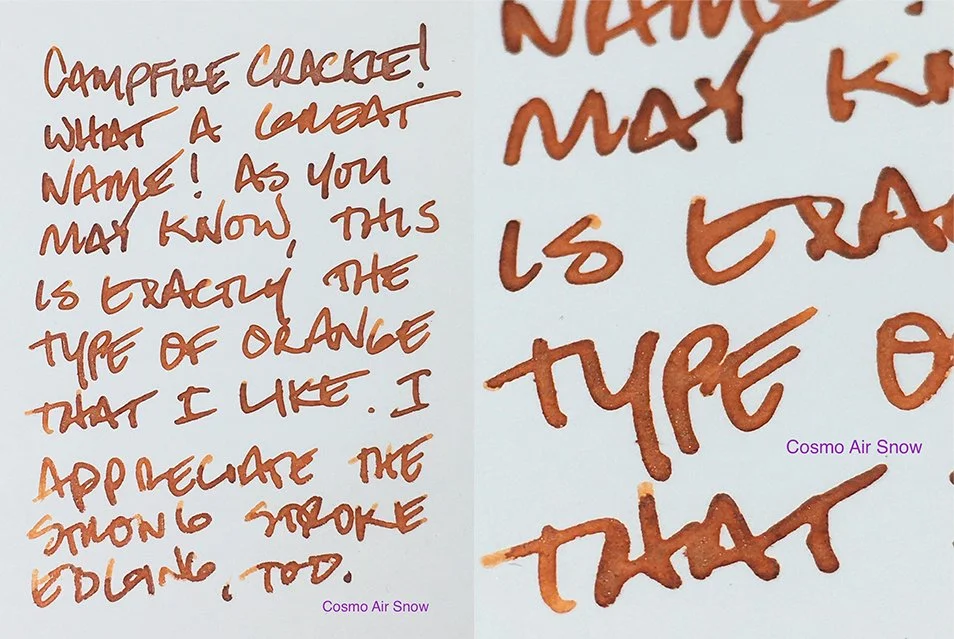 CAMPFIRE CRACKLE!
WHAT A GREAT
NAME! AS YOU
MAY KNOW, THIS
IS EXACTLY THE
TYPE OF ORANGE
THAT I LIKE. I
APPRECIATE THE
STRONG STROKE
EDGING, TOO.
Cosmo Air Snow
NAME!
MAY K
IS EXA
TYPE O
Cosmo Air Snow
THAT